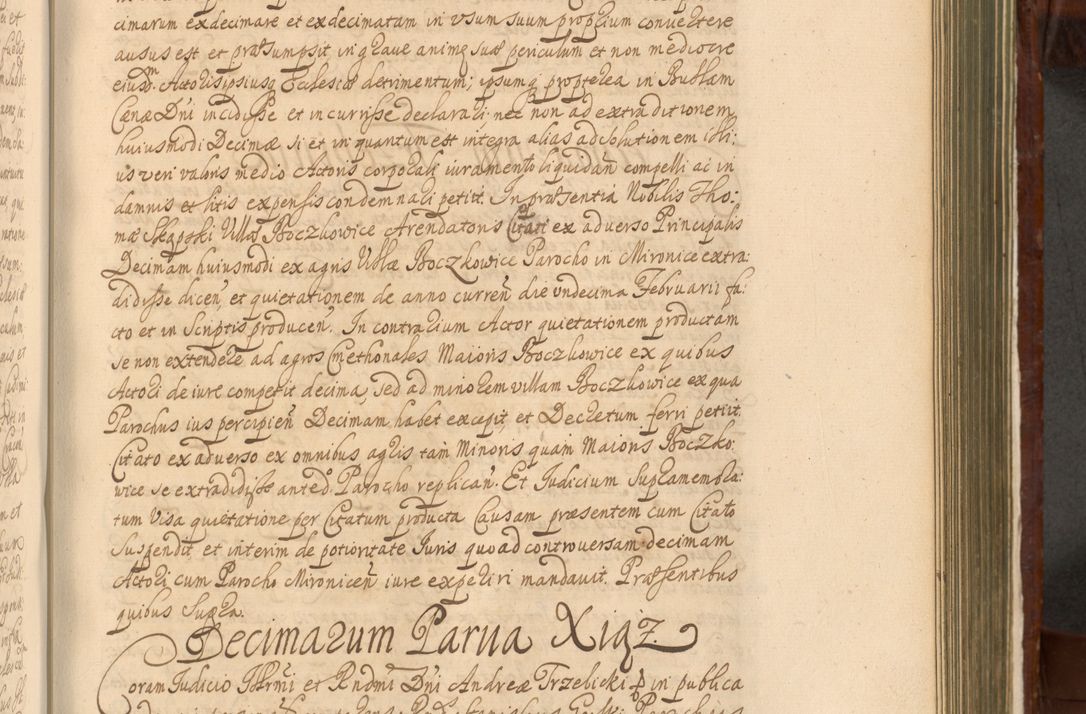 cimarum exdecimare et exdecimatam in vsum suum proprium convertere
ausus est et præsumpsit in grave animę suæ periculum et non mediocre
eiusdm. Actoris ipsiusq Ecclesiæ detrimentum; ipsumq propterea in Bullam
Cænæ Dni incidisse et incurrisse declarari nec non ad extraditionem
huiusmodi Decimæ si et in quantum est integra alias ad solutionem illi:
us veri valoris medio Actoris corporali iuramento liquidan compelli ac in
damnis et litis expensis condemnari petiit. In præsentia Nobilis Tho:
mæ Skapski Villæ Boczkowice Arendatoris Citati ex adverso Principalis
Decimam huiusmodi ex agris Villæ Boczkowice Parocho in Mironice extra:
didisse dicen, et quietationem de anno curren die vndecima Februarii fa:
cto et in Scriptis producen. In contrarium Actor quietationem productam
se non extendere ad agros Cmethonales Maioris Boczkowice ex quibus
Actori de iure competit decima, sed ad minorem villam Boczkowice ex qua
Parochus ius percipien Decimam habet excepit, et Decretum ferri petiit.
Citato ex adverso ex omnibus agris tam Minoris quam Maioris Boczko:
wice se extradidisse anted. Parocho replican. Et Iudicium Supramemora:
tum Visa quietatione per Citatum producta Causam præsentem cum Citato
Suspendit et interim de potioritate Iuris quo ad controversam decimam
Actori cum Parocho Mironicen iure experiri mandavit. Præsentibus
quibus Supra.
Decimarum Parua Xigz
Coram Iudicio Illrmi et Rndmi Dni Andreæ Trzebicki in publica